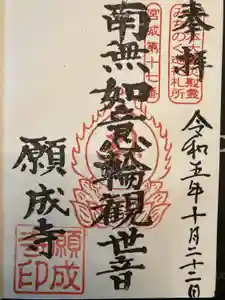 奉拝
令和五年十月二十二日
南無如意輪観世音
宮城第十七番
願成寺
願成寺印